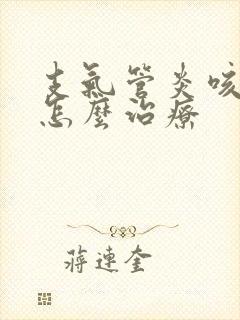 支氣管炎咳
怎麼治療
蔣連奎